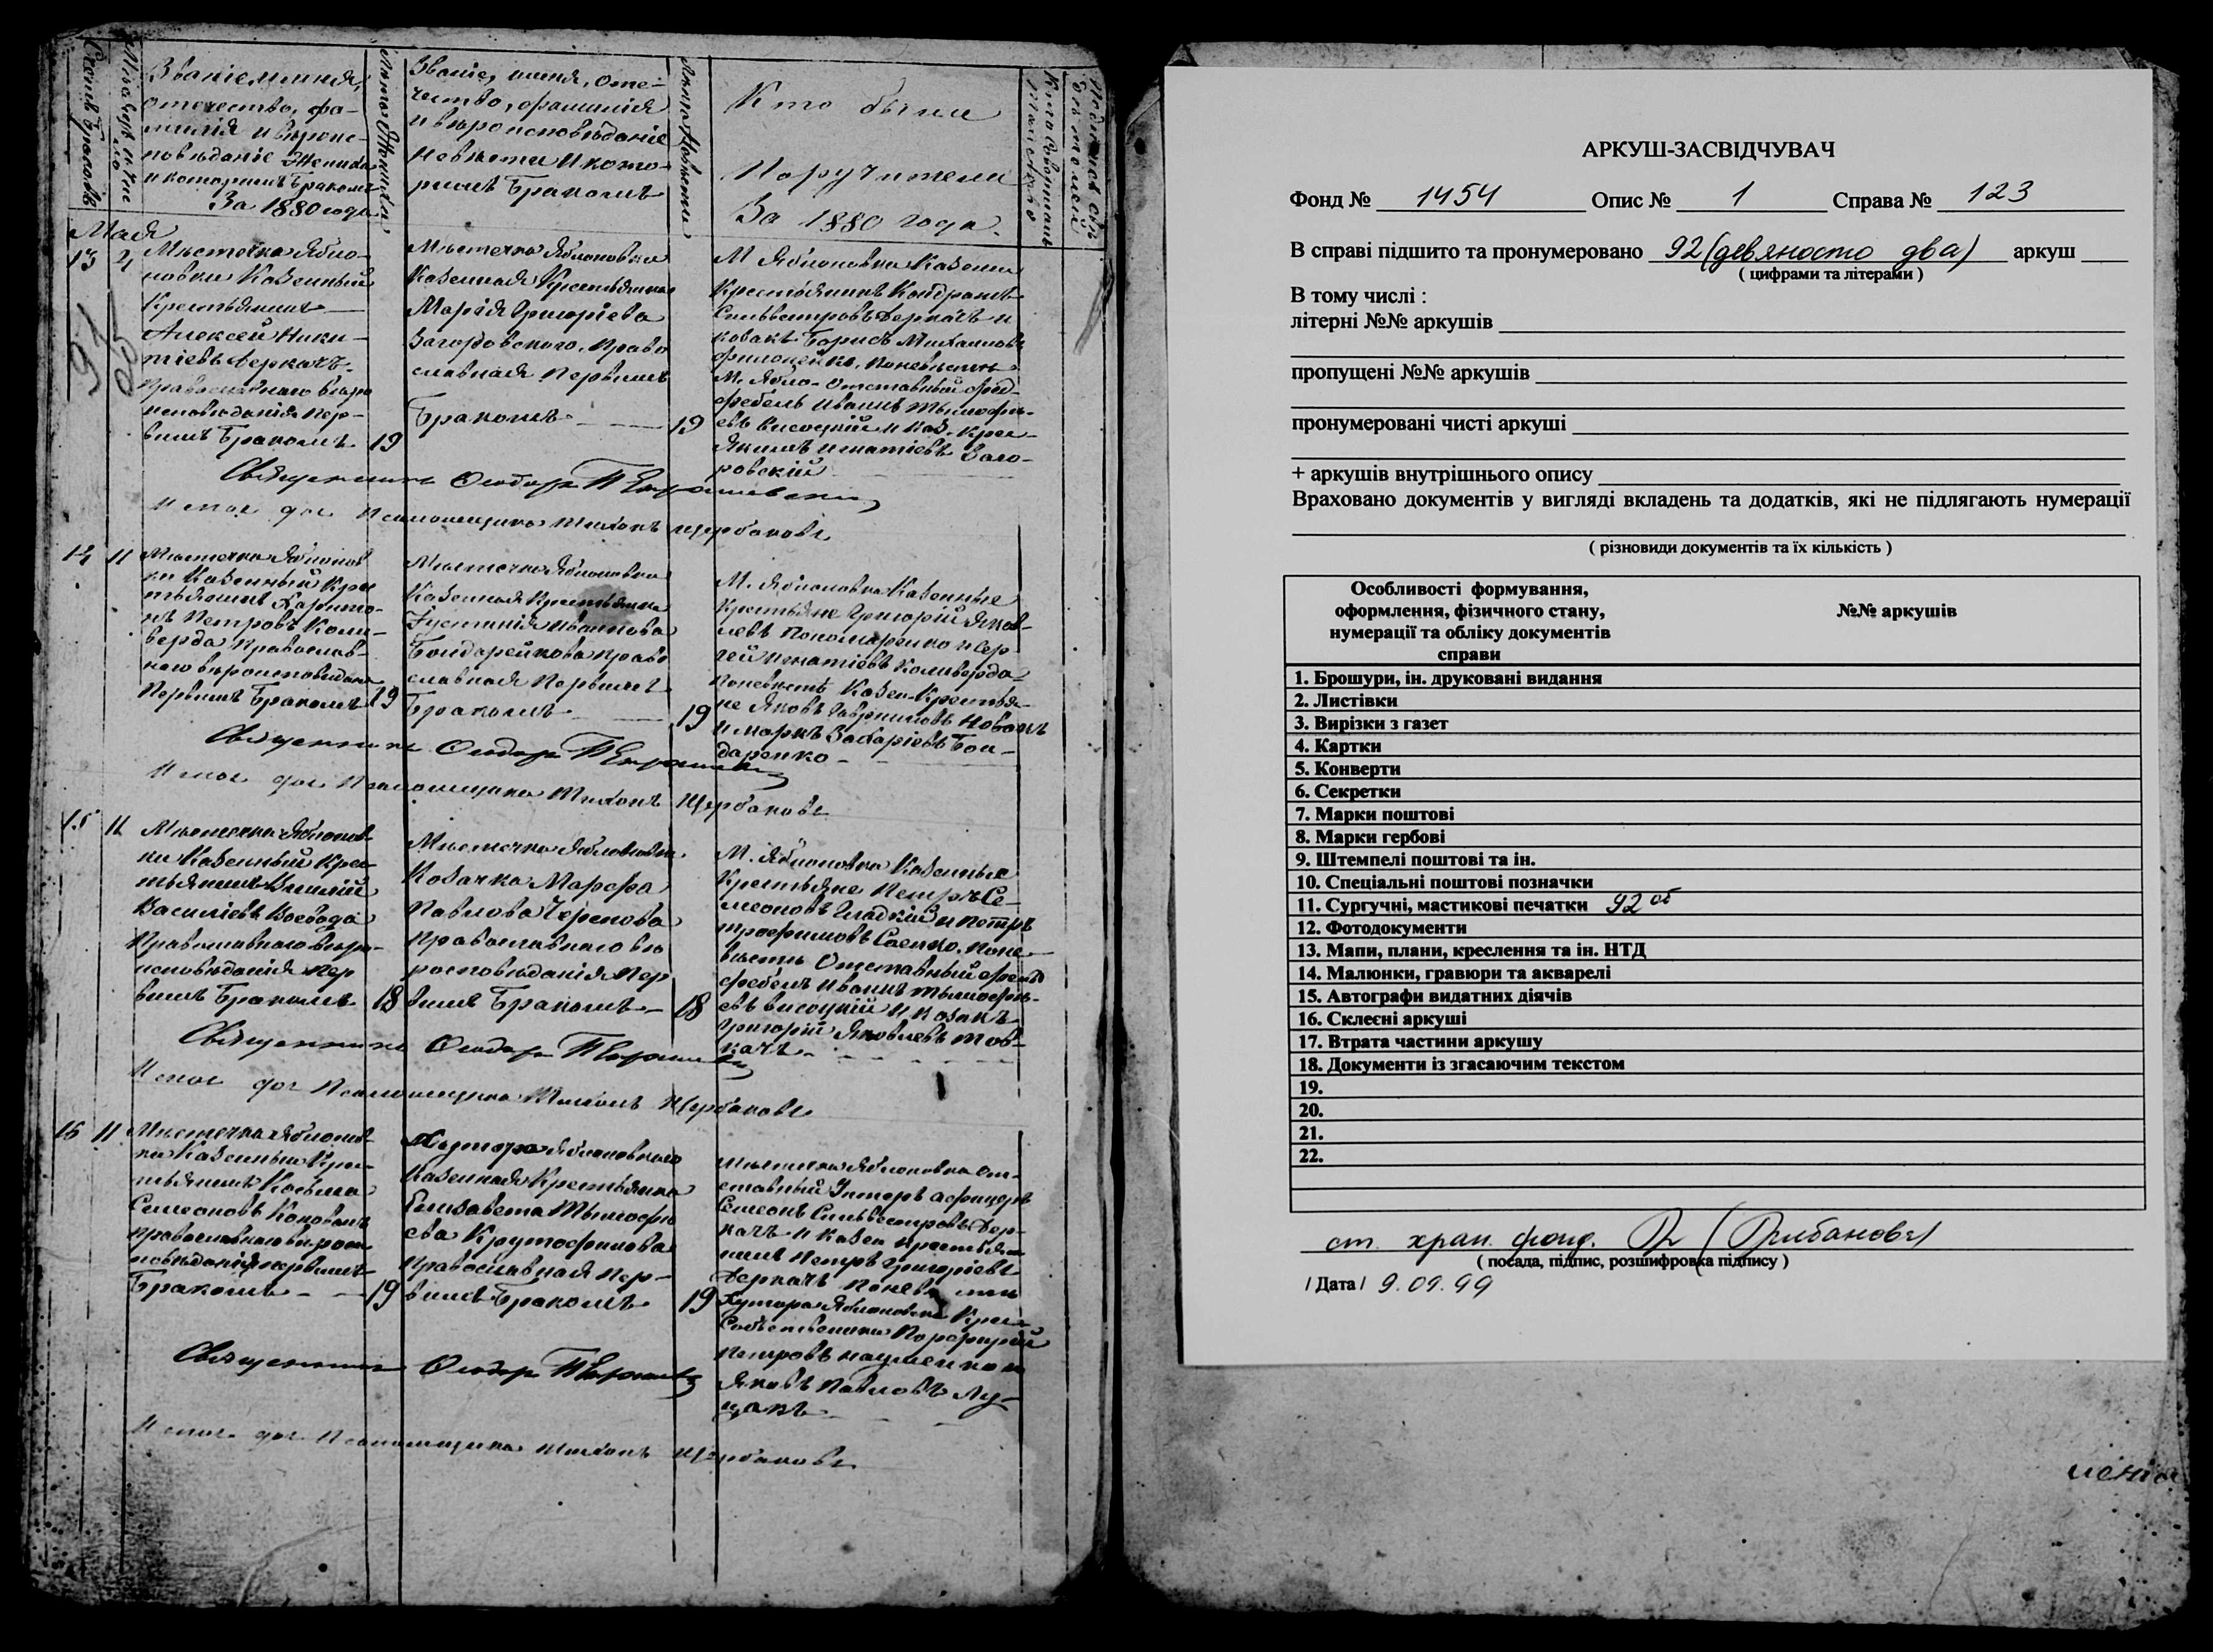 Званіе, имя,
отечество, фа-
милія и вѣроис-
повѣданіе Жениха
и которымъ Бракомъ
За 1880 года
Лѣта Жениха
Званіе, имя, оте-
чество, фамилія
и вѣроисповѣданіе
Невѣсты и кото-
рымъ Бракомъ
Лѣта Невѣсты
Кто были
Поручители
За 1880 года.
Мая
13
Мѣстечка Ябло-
новки Казенный
Крестьянинъ
Алексей Ники-
тіевъ Деркачъ.
Православнаго вѣро
исповѣданія Пер-
вымъ Бракомъ 19
Мѣстечка Яблоновка
Казенная Крестьянка
Марія Григоріева
Загоровского. Право
славная Первымъ
Бракомъ 19
М Яблоновка Казенны
Крестьянинъ Кондратъ
Сильвестровъ Деркачъ и
козакъ Борисъ Михаиловъ
Филоненко. Поневѣсты
М. Ябло- Отставный фед-
фебель Иванъ Тымофѣ-
евъ Высоцкій и Каз. Крес-
Якимъ Игнатіевъ Заго-
ровскій
Священникъ Феодоръ
И. мое дол Псаломщика Тихонъ Щербаковъ
14 11
Мѣстечка Яблонов
ки Казенный Крес
тьянинъ Харито-
нъ Петровъ Коли-
верда Православ-
наго вѣроисповѣдан
Первымъ Бракомъ 19
Мѣстечка Яблоновка
Казенная Крестьянка
Густинія Иванова
Бондаренкова Право
славная Первымъ
Бракомъ 19
М. Яблоновка Казенные
Крестьяне Григорій Яков-
левъ Пономаренко и Сер
гей Игнатіевъ Коливерда
Поневѣстѣ Казен. Крестья-
не Яковъ Гавриловъ Новакъ
и Марко Захаріевъ Бон-
даренко
Священникъ Феодоръ
И. мое дол Псаломщика Тихонъ Щербаковъ
15 11
Мѣстечка Яблонов
ки Казенный Крес-
тьянинъ
Василіевъ Воевода
Православнаго вѣро-
исповѣданія Пер
вымъ Бракомъ 18
Мѣстечка Яблоновки
Козачка Марфа
Павлова Черепова
Православнаго вѣ
роисповѣданія Пер
вымъ Бракомъ 18
М. Яблоновка Казенные
Крестьяне Петръ Се-
меоновъ Гладкій и Петръ
Трофимовъ Саенко. Поне-
вѣсты Отставный фельд
фебель Иванъ Тымофѣ-
евъ Высоцкій и козакъ
Григорій Яковлевъ Тов-
качъ
Священникъ Феодоръ
И. мое дол Псаломщика Тихонъ Щербаковъ
16 11
Мѣстечка Яблонов
ка Казенный Крес-
тьянинъ Косьма
Семеоновъ Коновалъ
православнаго вѣроис
повѣданія первымъ
Бракомъ 19
Хутора Яблоновкаго
Казенная Крестьянка
Елизавета Тымофѣ
ева Крутофилова
Православная Пер-
вымъ Бракомъ 19
Мѣстечка Яблоновка От-
ставный Унтеръ афицеръ
Семеонъ Сильвестровъ Дер-
качъ и Казен крестьян
нинъ Петръ Григоріевъ
Деркачъ Поневѣсты
Хутора Яблоновка Крес
Собственники Порфирій
Петровъ Науменко и
Яковъ Павловъ Лу-
цакъ
Священникъ Феодоръ
И. мое дол Псаломщика Тихонъ Щербаковъ
АРКУШ-ЗАСВІДЧУВАЧ
Фонд № 1454 Опис № 1 Справа № 123
В справі підшито та пронумеровано 92 (девяносто два) аркуш
( цифрами та літерами )
В тому числі :
літерні №№ аркушів
пропущені №№ аркушів
пронумеровані чисті аркуші
+ аркушів внутрішнього опису
Враховано документів у вигляді вкладень та додатків, які не підлягають нумерації
( різновиди документів та їх кількість )
Особливості формування,
оформлення, фізичного стану,
нумерації та обліку документів
справи
№№ аркушів
1. Брошури, ін. друковані видання
2. Листівки
3. Вирізки з газет
4. Картки
5. Конверти
6. Секретки
7. Марки поштові
8. Марки гербові
9. Штемпелі поштові та ін.
10. Спеціальні поштові позначки
11. Сургучні, мастикові печатки 92 об
12. Фотодокументи
13. Мапи, плани, креслення та ін. НТД
14. Малюнки, гравюри та акварелі
15. Автографи видатних діячів
16. Склеєні аркуші
17. Втрата частини аркушу
18. Документи із згасаючим текстом
19.
20.
21.
22.
ст. хран. фонд.
( посада, підпис, розшифровка підпису )
/ Дата / 9.09.99